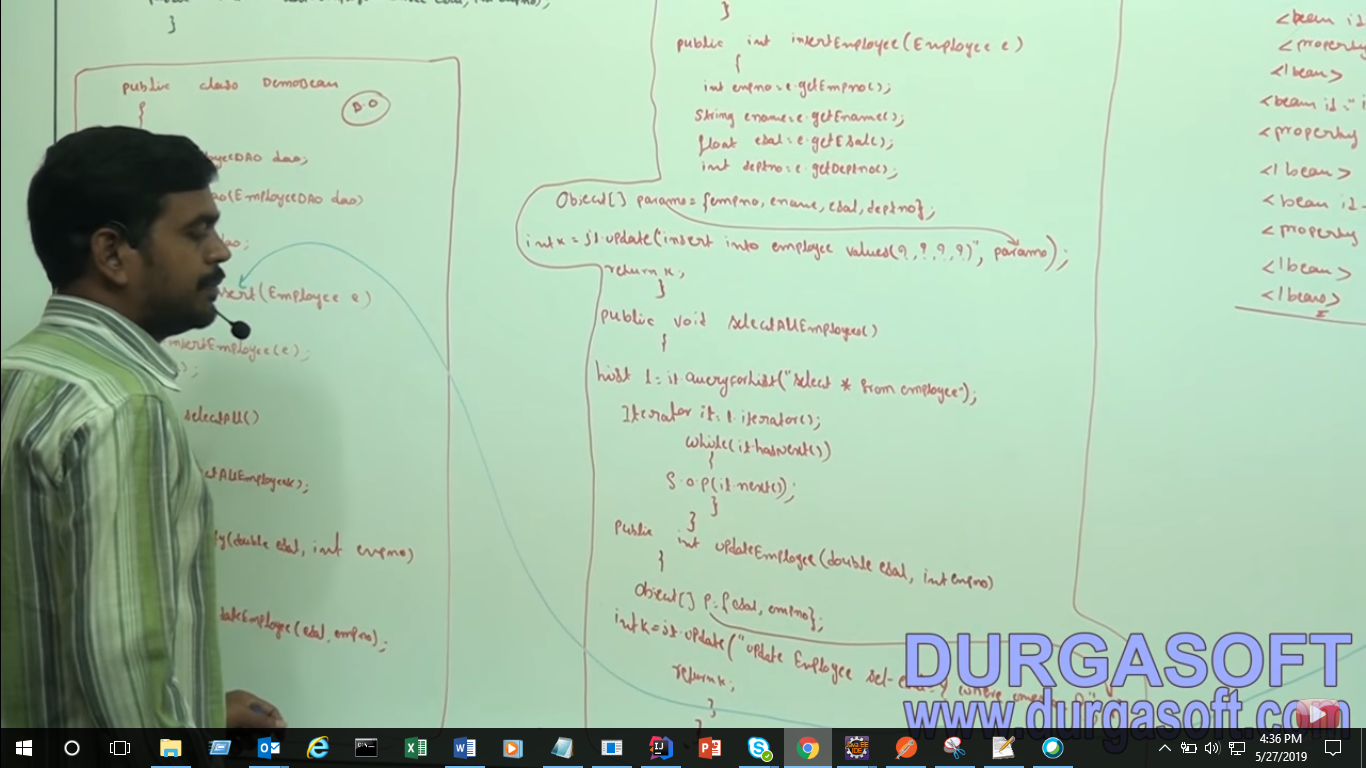 }
public class DemoBean
{
B.O
EmployeeDAO dao;
(EmployeeDAO dao)
dao;
insert(Employee e)
insertEmployee(e);
);
selectAll()
AllEmployees();
(double esal, int empno)
updateEmployee(esal, empno);
}
public int insertEmployee(Employee e)
{
int empno=e.getEmpno();
String ename=e.getEname();
float esal=e.getEsal();
int deptno=e.getDeptno();
Object[] params={empno, ename, esal, deptno};
int k=jt.update("insert into employee values(?,?,?,?)", params);
return k;
}
public void selectAllEmployees()
{
List l=jt.queryForList("select * from employee");
Iterator it=l.iterator();
while(it.hasNext())
{
S.o.p(it.next());
}
}
public int updateEmployee(double esal, int empno)
{
Object[] p={esal, empno};
int k=jt.update("update Employee set esal=? where
return k;
}
}
<bean id
<property
</bean>
<bean id="i
<property
</bean>
<bean id=
<property
</bean>
</beans>
DURGASOFT
www.durgasoft.com
4:36 PM
5/27/2019